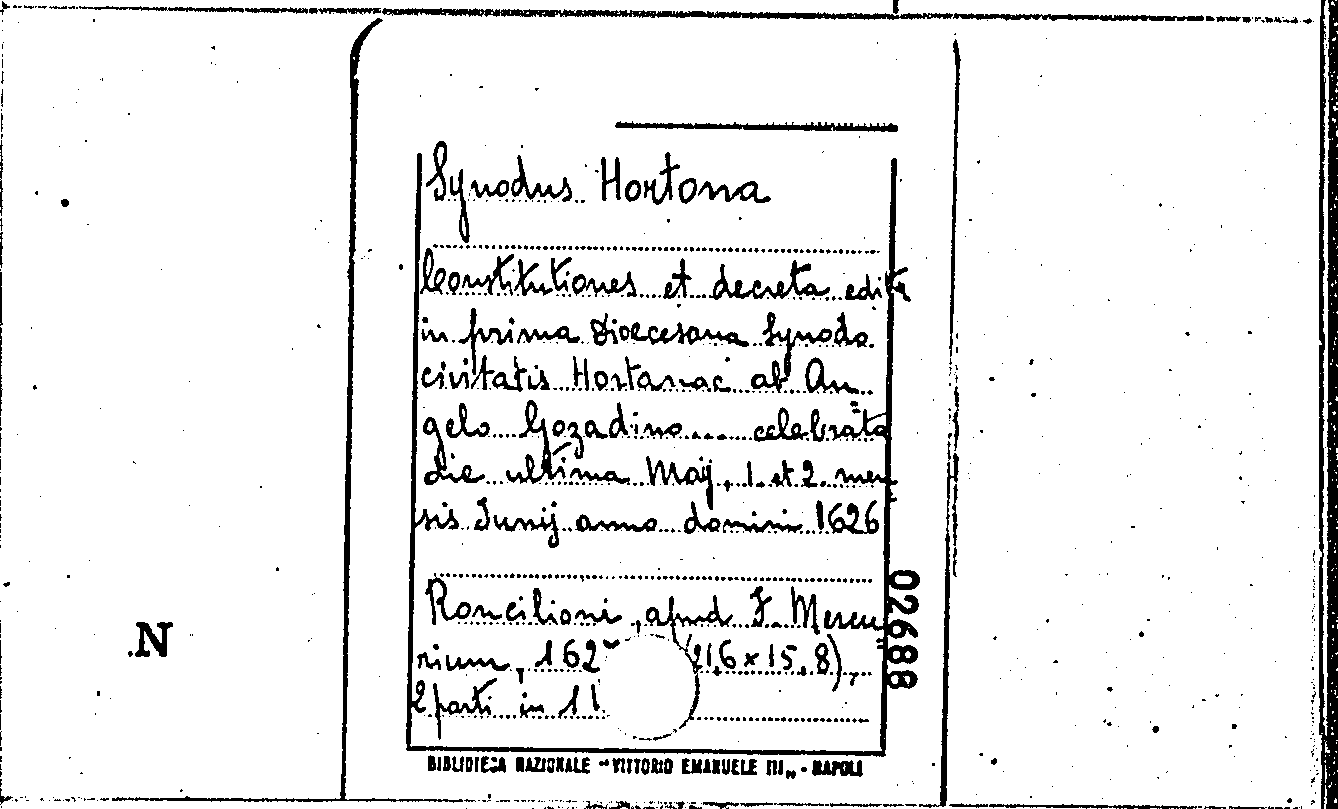 Synodus Hortana
Constitutiones et decreta edita
in prima Dioecesana Synodo
civitatis Hortanae ab An
gelo Gozadino... celebrata
die ultima Maij, 1. et 2. men
sis Junij anno domini 1626
Roncilioni, apud F. Mercu
rium, 162 (21,6 x 15,8),
2 parti in 1
BIBLIOTECA NAZIONALE "VITTORIO EMANUELE III„ - NAPOLI
02688
.N